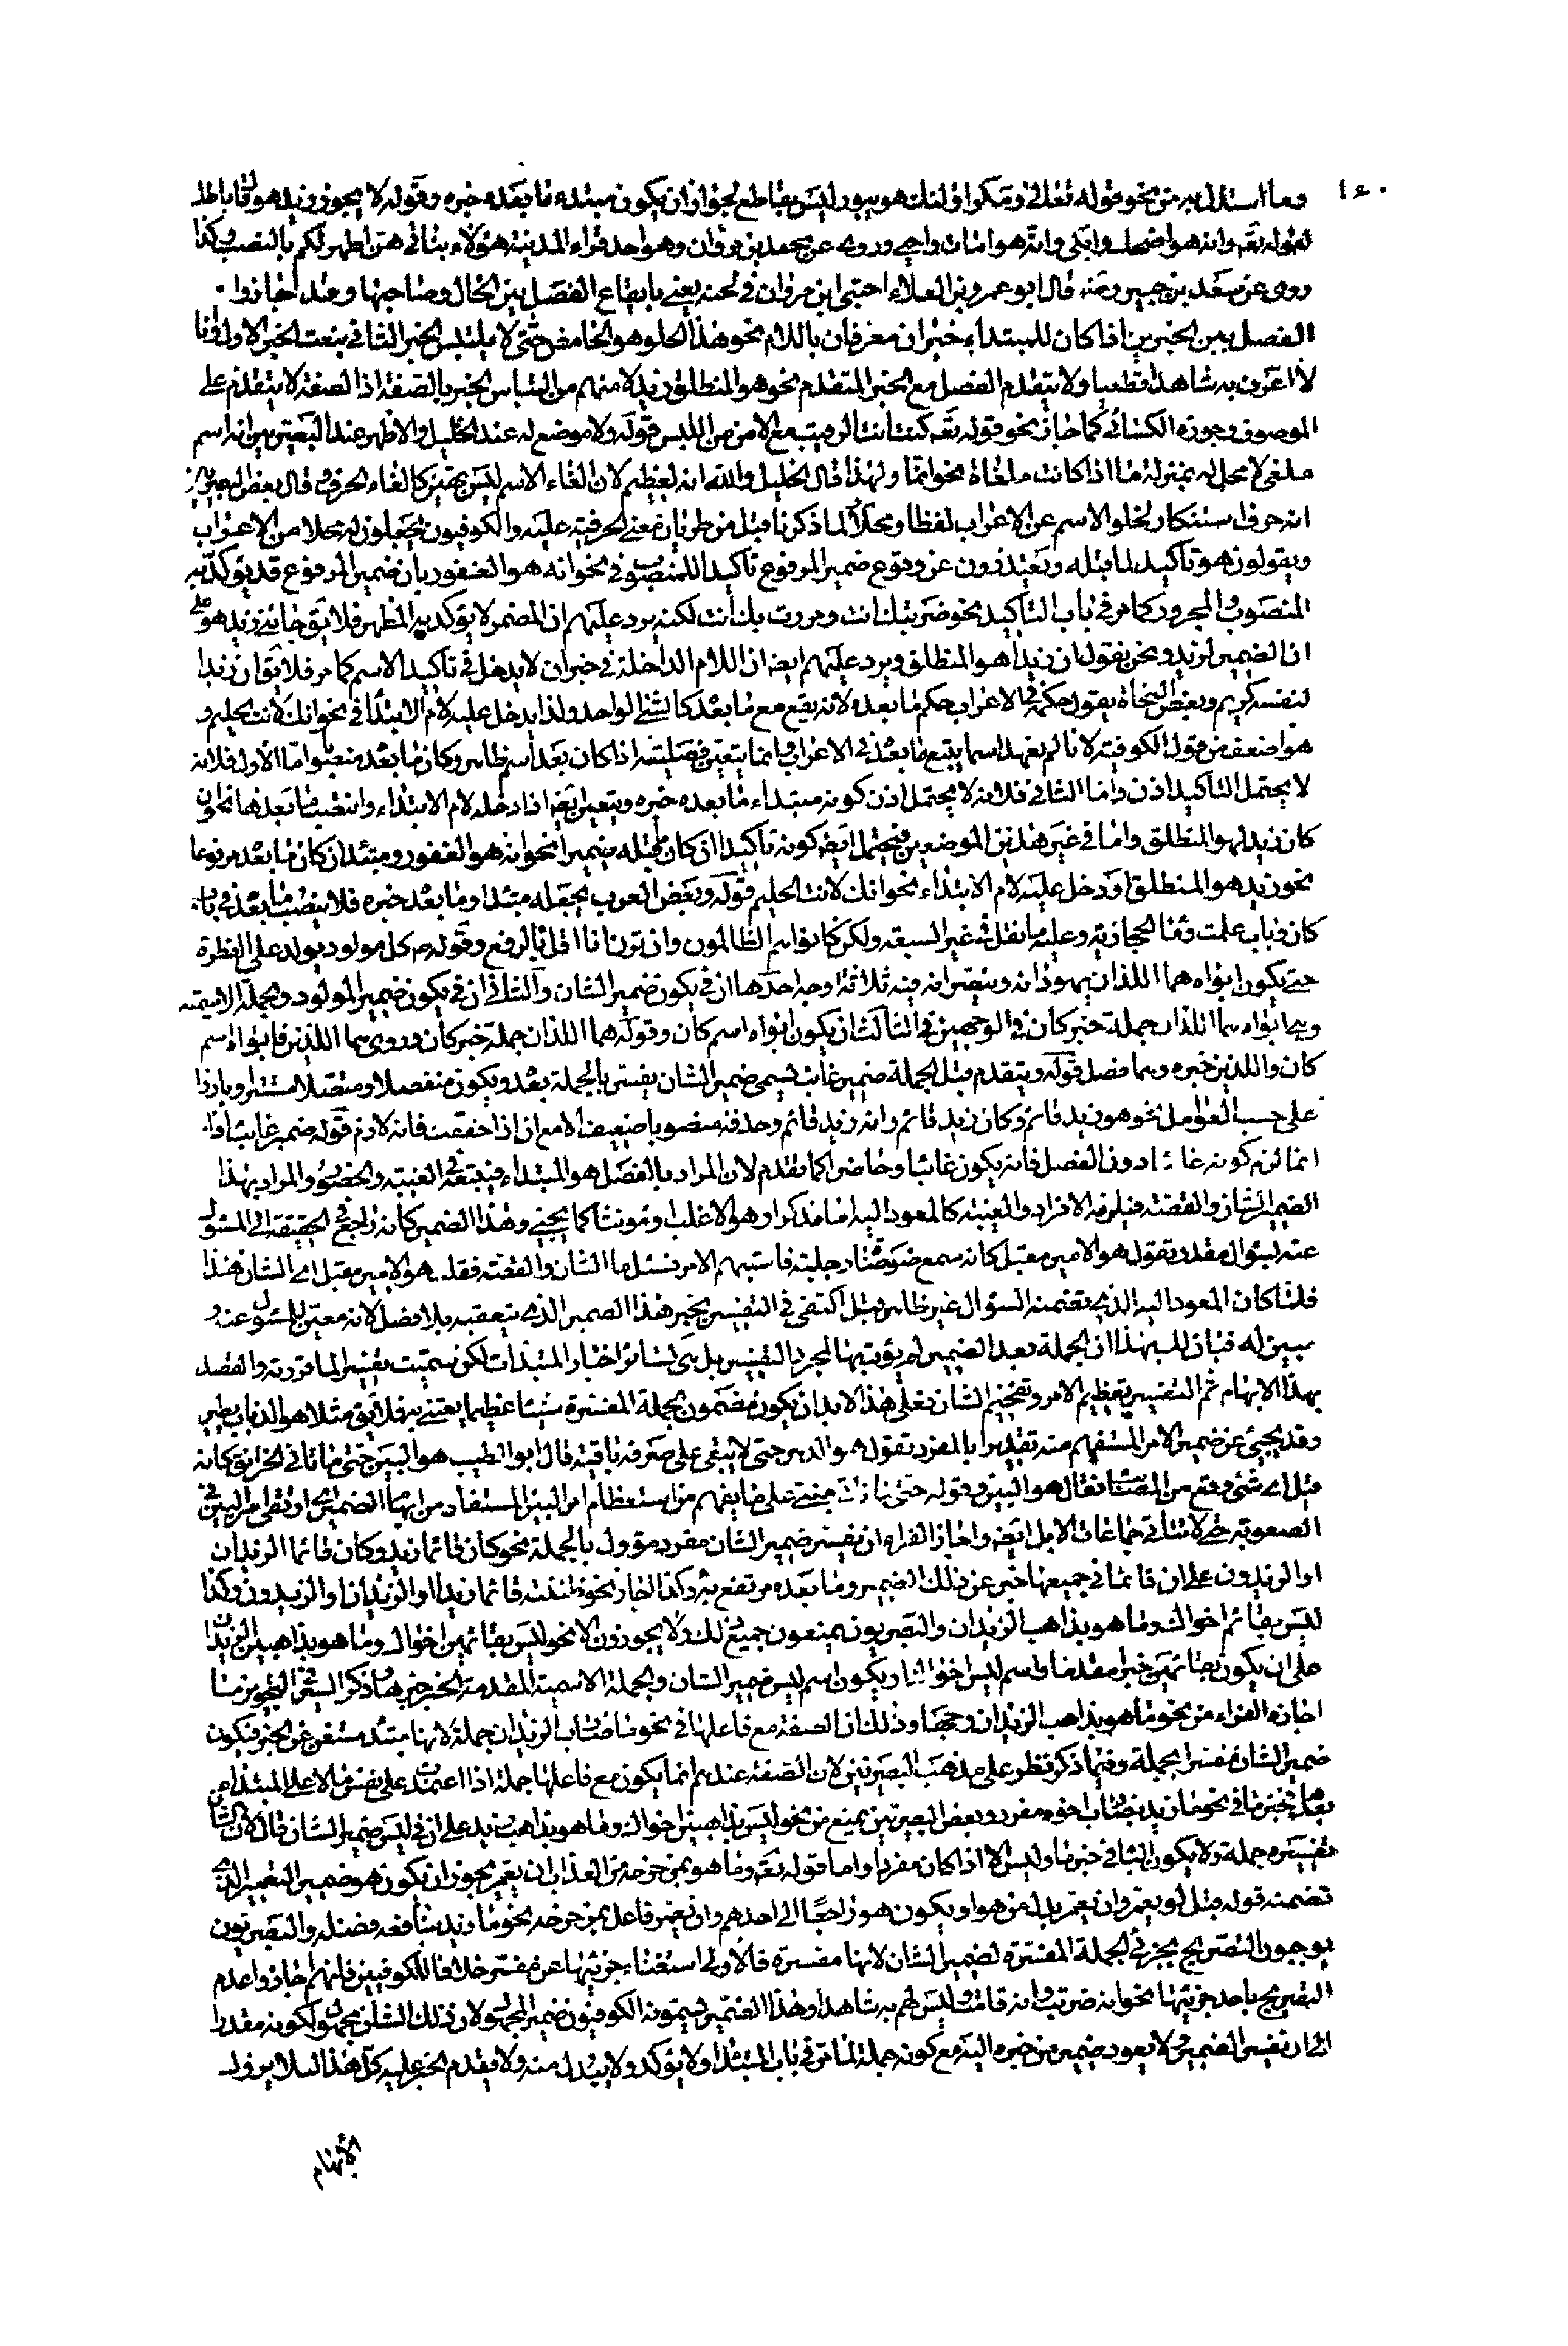 ١٤٠
وما استدل به من نحو قوله تعالى ومكر اولئك هو يبور ليس بقاطع لجواز ان يكون مبتدء ما بعده خبره وقوله لا يجوز زيد هو قا باطل
لقوله تعه وانه هو اضحك وابكى وانه هو امات واحيى وروى عن محمد بن مروان وهو احد قراء المدينة هؤلاء بناتى هن اطهر لكم بالنصب وكذا
روى عن سعيد بن جبير وعنه قال ابو عمرو بن العلاء احتبى ابن مروان فى لحنه يعنى بايقاع الفصل بين الحال وصاحبها وعند اجازوا
الفصل بين الخبرين اذا كان للمبتداء خبران معرفان باللام نحو هذا الحلو هو الحامض حتى لا يلتبس الخبر الثانى بنعت الخبر الاول وانا
لا اعرف به شاهدا قطعيا ولا يتقدم الفصل مع الخبر المتقدم نحو هو المنطلق زيد لامنهم من التباس الخبر بالصفة اذ الصفة لا يتقدم على
الموصوف وجوزه الكسائى كما جاز نحو قوله تعه كنت انت الرقيب مع الامن من اللبس قوله ولا موضع له عند الخليل والاظهر عند البصريين انه اسم
ملغى لا محل له بمنزلة ما اذا كانت ملغاة نحو انما ولهذا قال الخليل والله انه لعظيم لان الغاء الاسم ليس بهين كالغاء الحرف وقال بعض البصريين
انه حرف استنكار لخلو الاسم عن الاعراب لفظا ومحلا لما ذكرنا قبل من طريان معنى الحرفية عليه والكوفيون يجعلون له محلا من الاعراب
ويقولون هو تأكيد لما قبله ويعتذرون عن وقوع ضمير المرفوع تأكيدا للمنصوب فى نحو انه هو الغفور بان ضمير المرفوع قد يؤكد به
المنصوب والمجرور كما مر فى باب التأكيد نحو ضربتك انت ومررت بك انت لكنه يرد عليهم ان المضمر لا يؤكد به المظهر فلا يق جائنى زيد هو على
ان الضمير لزيد ونحن نقول ان زيدا هو المنطلق ويرد عليهم ايضا ان اللام الداخلة فى خبر ان لا يدخل فى تأكيد الاسم كما مر فلا يق ان زيدا
لنفسه كريم وبعض النحاة يقول حكمه فى الاعراب حكم ما بعده لانه يقع مع ما بعده كالشئ الواحد ولذا يدخل عليه لام الابتداء فى نحو انك لانت الحليم و
هو اضعف من قول الكوفية لانا لم نعهد اسما يتبع ما بعده فى الاعراب وانما يتعين فصليته اذا كان بعد اسم ظاهر وكان ما بعده منصوبا اما الاول فلانه
لا يحتمل التأكيد اذن واما الثانى فلانه لا يحتمل اذن كونه مبتداء ما بعده خبره ويتعين ايضا اذا دخله لام الابتداء وانتصب ما بعدها نحو ان
كان زيد لهو المنطلق واما فى غير هذين الموضعين فيحتمل ايضا كونه تأكيدا ان كان ما قبله ضميرا نحو انه هو الغفور ومبتدأ ان كان ما بعده مرفوعا
نحو زيد هو المنطلق او دخل عليه لام الابتداء نحو انك لانت الحليم قوله وبعض العرب يجعله مبتدا وما بعده خبره فلا ينصب ما بعده فى باب
كان وباب علمت وما الحجازية وعليه ما نقل فى غير السبعة ولكن كانوا هم الظالمون وان ترن انا اقل بالرفع وقوله ص كل مولود يولد على الفطرة
حتى يكون ابواه هما اللذان يهودانه وينصرانه فيه ثلاثة اوجه احدها ان فى يكون ضمير الشان والثانى ان فى يكون ضمير المولود والجملة الاسمية
وهى ابواه هما اللذان جملة خبر كان فى الوجهين والثالث ان يكون ابواه اسم كان وقوله هما اللذان جملة خبر كان وروى هما اللذين فابواه اسم
كان واللذين خبره وهما فصل قوله ويتقدم قبل الجملة ضمير غائب يسمى ضمير الشان يفسر بالجملة بعده ويكون منفصلا ومتصلا مستترا وبارزا
على حسب العوامل نحو هو زيد قائم وكان زيد قائم وانه زيد قائم وحذفه منصوبا ضعيف الا مع ان اذا خففت فانه لازم قوله ضمير غائب
انما لزم كونه غائبا دون الفصل فانه يكون غائبا وحاضرا كما تقدم لان المراد بالفصل هو المبتداء فيتبعه فى الغيبة والحضور والمراد بهذا
الضمير الشان والقصة فيلزمه الافراد والغيبة كالمعود اليه اما مذكرا وهو الاغلب او مؤنثا كما يجئ وهذا الضمير كانه راجع فى الحقيقة الى المسئول
عنه بسؤال مقدر تقول هو الامير مقبل كانه سمع ضوضاء وجلبة فاستبهم الامر فسئل ما الشان والقصة فقلت هو الامير مقبل اى الشان هذا
فلما كان المعود اليه الذى تضمنه السؤال غير ظاهر قبل اكتفى فى التفسير بخبر هذا الضمير الذى يتعقبه بلا فصل لانه معين للمسئول عنه و
مبين له فبان لك بهذا ان الجملة بعد الضمير لم يؤت بها لمجرد التفسير بل هى كسائر اخبار المبتدات لكن سميت تفسيرا لما قررته والقصد
بهذا الابهام ثم التفسير تعظيم الامر وتفخيم الشان فعلى هذا لابد ان يكون مضمون الجملة المفسرة شيئا عظيما يعتنى به فلا يق مثلا هو الذباب يطير
وقد يجئ عن ضمير الامر المستفهم منه تقديرا بالمفرد تقول هو الدهر حتى لا يبقى على صرفه باقية قال ابو الطيب هو البين حتى ما تانى الحزائق كانه
قيل اى شئ وقع من المصائب فقال هو البين وقوله حتى ما تانى مبنى على ما يفهم من استعظام امر البين المستفاد من ابهام الضمير اى ارتقى امر البين فى
الصعوبة حتى لا تتانى جماعات الابل ايضا واجاز الفراء ان يفسر ضمير الشان مفرد مؤول بالجملة نحو كان قائما زيد وكان قائما الزيدان
او الزيدون على ان قائما فى جميعها خبر عن ذلك الضمير وما بعده مرتفع به وكذا اجاز نحو ظننته قائما زيد او الزيدان او الزيدون وكذا
ليس بقائم اخواك وما هو بذاهب الزيدان والبصريون يمنعون جميع ذلك ولا يجوزون الا نحو ليس بقائمين اخواك وما هو بذاهبين الزيدان
على ان يكون بقائمين خبرا مقدما واسم ليس اخواك او يكون اسم ليس ضمير الشان والجملة الاسمية المقدمة الخبر خبرها وذكر السيرافى التجويز ما
اجازه الفراء من نحو ما هو بذاهب الزيدان وجها وذلك ان الصفة مع فاعلها فى نحو ما ضارب الزيدان جملة لانها مبتدء مستغن عن الخبر فيكون
ضمير الشان مفسرا بجملة وفيما ذكر نظر على مذهب البصريين لان الصفة عندهم انما يكون مع فاعلها جملة اذا اعتمدت على نفى ما لا على المبتداء
تفسيره جملة ولا يكون الباء فى خبر ما وليس الا اذا كان مفردا واما قوله تعه وما هو بمزحزحه من العذاب ان يعمر يجوز ان يكون هو ضمير التعمير الذى
تضمنه قوله قبل لو يعمر وان يعمر بدل من هو او يكون هو راجعا الى احدهم وان يعمر فاعل بمزحزحه نحو ما زيد بنافعه فضله والبصريون
يوجبون التصريح بجزئى الجملة المفسرة لضمير الشان لانها مفسرة فالاولى استغناء جزئيها عن مفسر خلافا للكوفيين فانهم اجازوا عدم
التصريح باحد جزئيها نحو انه ضربت وانه قامت وليس لهم به شاهد وهذا الضمير يسميه الكوفيون ضمير المجهول لان ذلك الشان مجهول لكونه مقدرا
الى ان تفسر الضمير ولا يعود ضمير من خبره اليه مع كونه جملة لما مر فى باب المبتدا ولا يؤكد ولا يبدل منه ولا يقدم الخبر عليه كل هذا لئلا يزول
الابهام